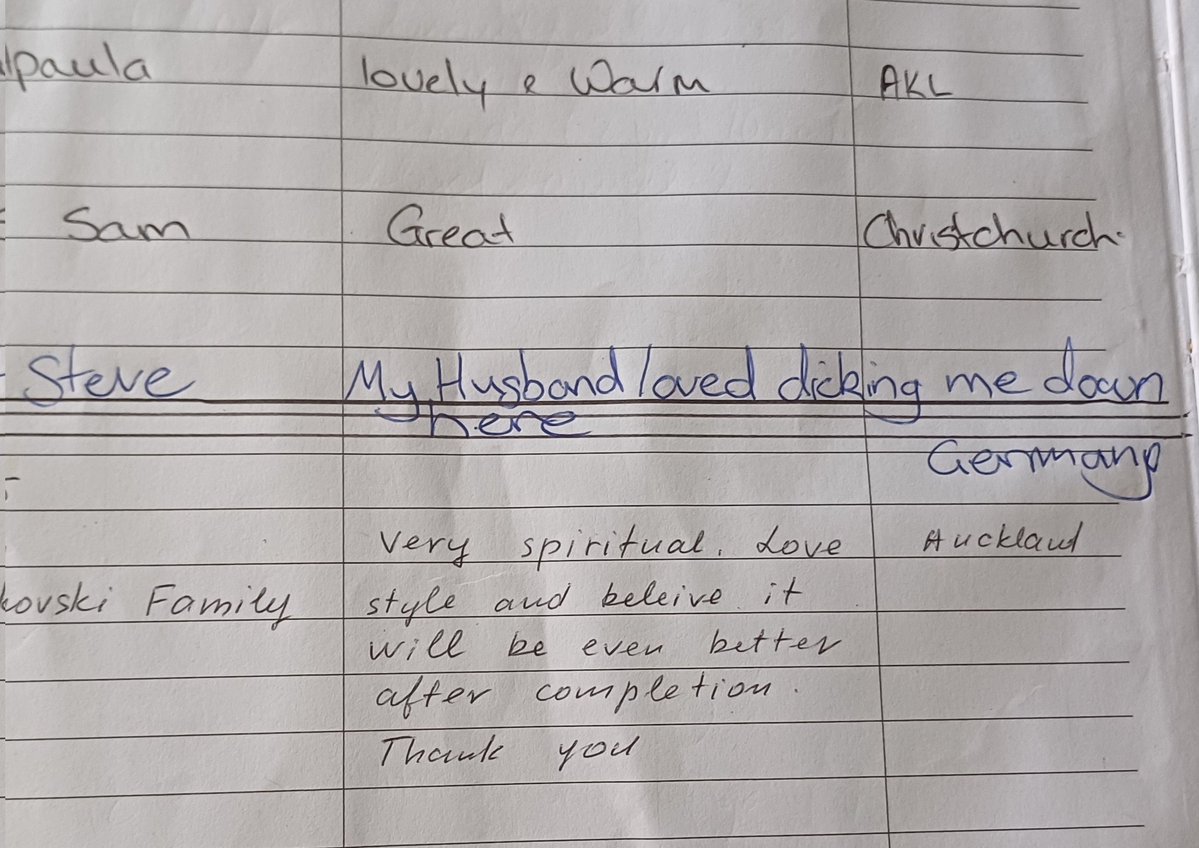 paula lovely & Warm AKL
Sam Great Christchurch.
Steve My Husband loved dicking me down
here
Germany
Very spiritual. Love Auckland
kovski Family style and beleive it
will be even better
after completion.
Thank you